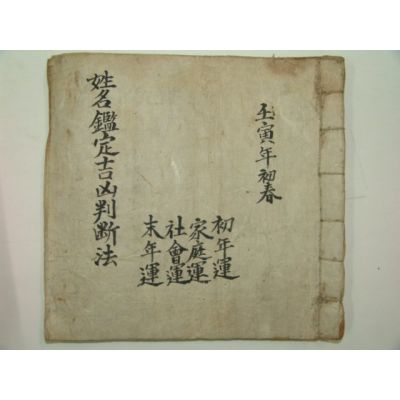 壬寅年初春
初年運
家庭運
社會運
末年運
姓名鑑定吉凶判斷法